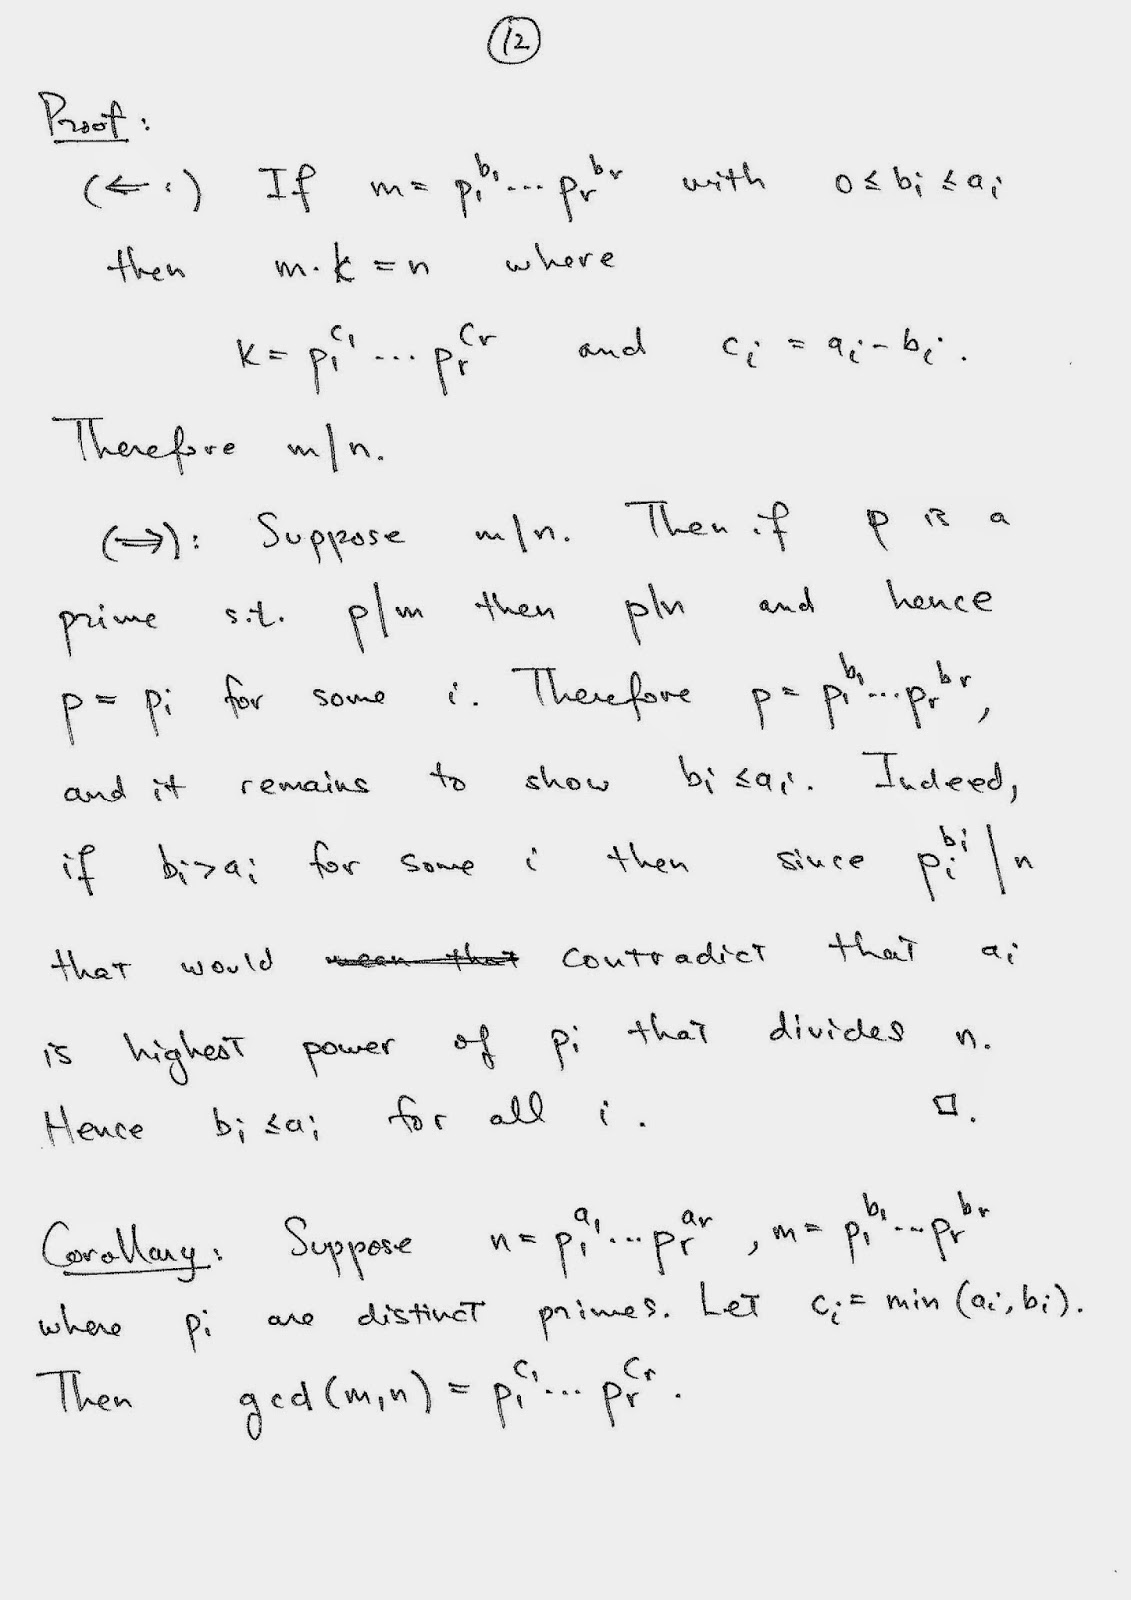 12
Proof:
(⇐:) If m = p₁^b₁ ... pᵣ^bᵣ with 0 ≤ bᵢ ≤ aᵢ
then m·k = n where
k = p₁^c₁ ... pᵣ^cᵣ and cᵢ = aᵢ - bᵢ.
Therefore m|n.
(⇒): Suppose m|n. Then if p is a
prime s.t. p|m then p|n and hence
p = pᵢ for some i. Therefore p = p₁^b₁ ... pᵣ^bᵣ,
and it remains to show bᵢ ≤ aᵢ. Indeed,
if bᵢ > aᵢ for some i then since pᵢ^bᵢ | n
that would ~~mean that~~ contradict that aᵢ
is highest power of pᵢ that divides n.
Hence bᵢ ≤ aᵢ for all i. □.
Corollary: Suppose n = p₁^a₁ ... pᵣ^aᵣ, m = p₁^b₁ ... pᵣ^bᵣ
where pᵢ are distinct primes. Let cᵢ = min (aᵢ, bᵢ).
Then gcd(m,n) = p₁^c₁ ... pᵣ^cᵣ.